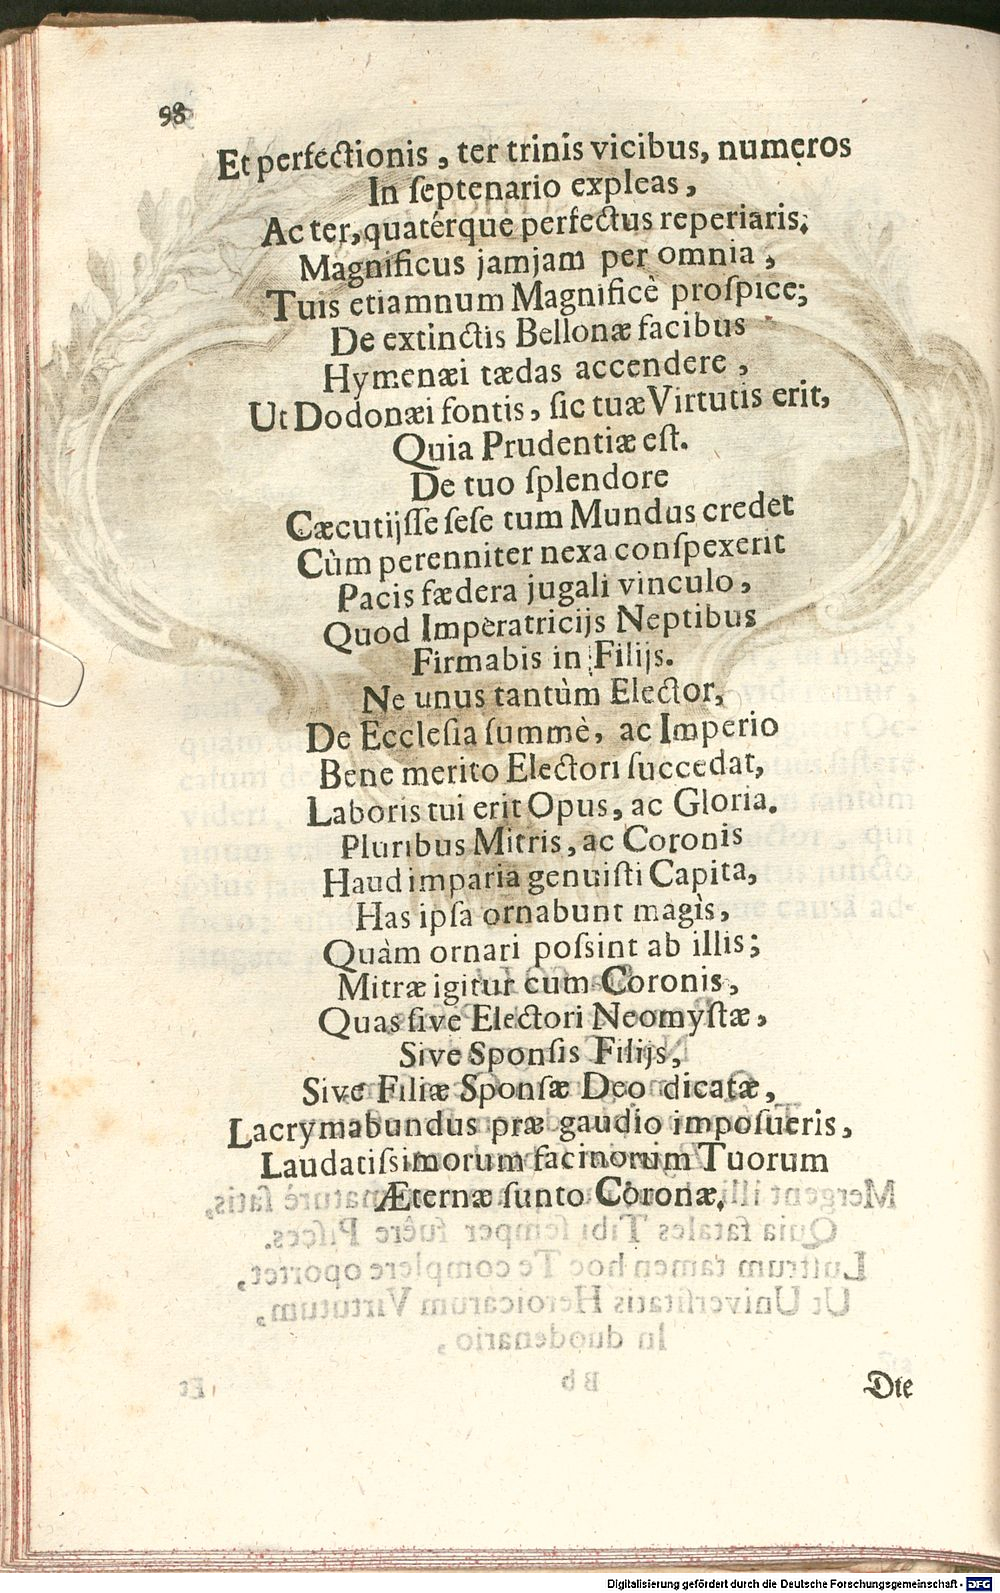 98
Et perfectionis, ter trinis vicibus, numeros
In ſeptenario expleas,
Ac ter, quatérque perfectus reperiaris;
Magnificus jamjam per omnia,
Tuis etiamnum Magnificè proſpice;
De extinctis Bellonæ facibus
Hymenæi tædas accendere,
Ut Dodonæi fontis, ſic tuæ Virtutis erit,
Quia Prudentiæ eſt.
De tuo ſplendore
Cæcutijſſe ſeſe tum Mundus credet
Cùm perenniter nexa conſpexerit
Pacis fædera jugali vinculo,
Quod Imperatricijs Neptibus
Firmabis in Filijs.
Ne unus tantùm Elector,
De Eccleſia ſummè, ac Imperio
Bene merito Electori ſuccedat,
Laboris tui erit Opus, ac Gloria.
Pluribus Mitris, ac Coronis
Haud imparia genuiſti Capita,
Has ipſa ornabunt magis,
Quàm ornari poſsint ab illis;
Mitræ igitur cum Coronis,
Quas ſive Electori Neomyſtæ,
Sive Sponſis Filijs,
Sive Filiæ Sponſæ Deo dicatæ,
Lacrymabundus præ gaudio impoſueris,
Laudatiſsimorum facinorum Tuorum
Æternæ ſunto Coronæ.
Die
Digitalisierung gefördert durch die Deutsche Forschungsgemeinschaft - DFG